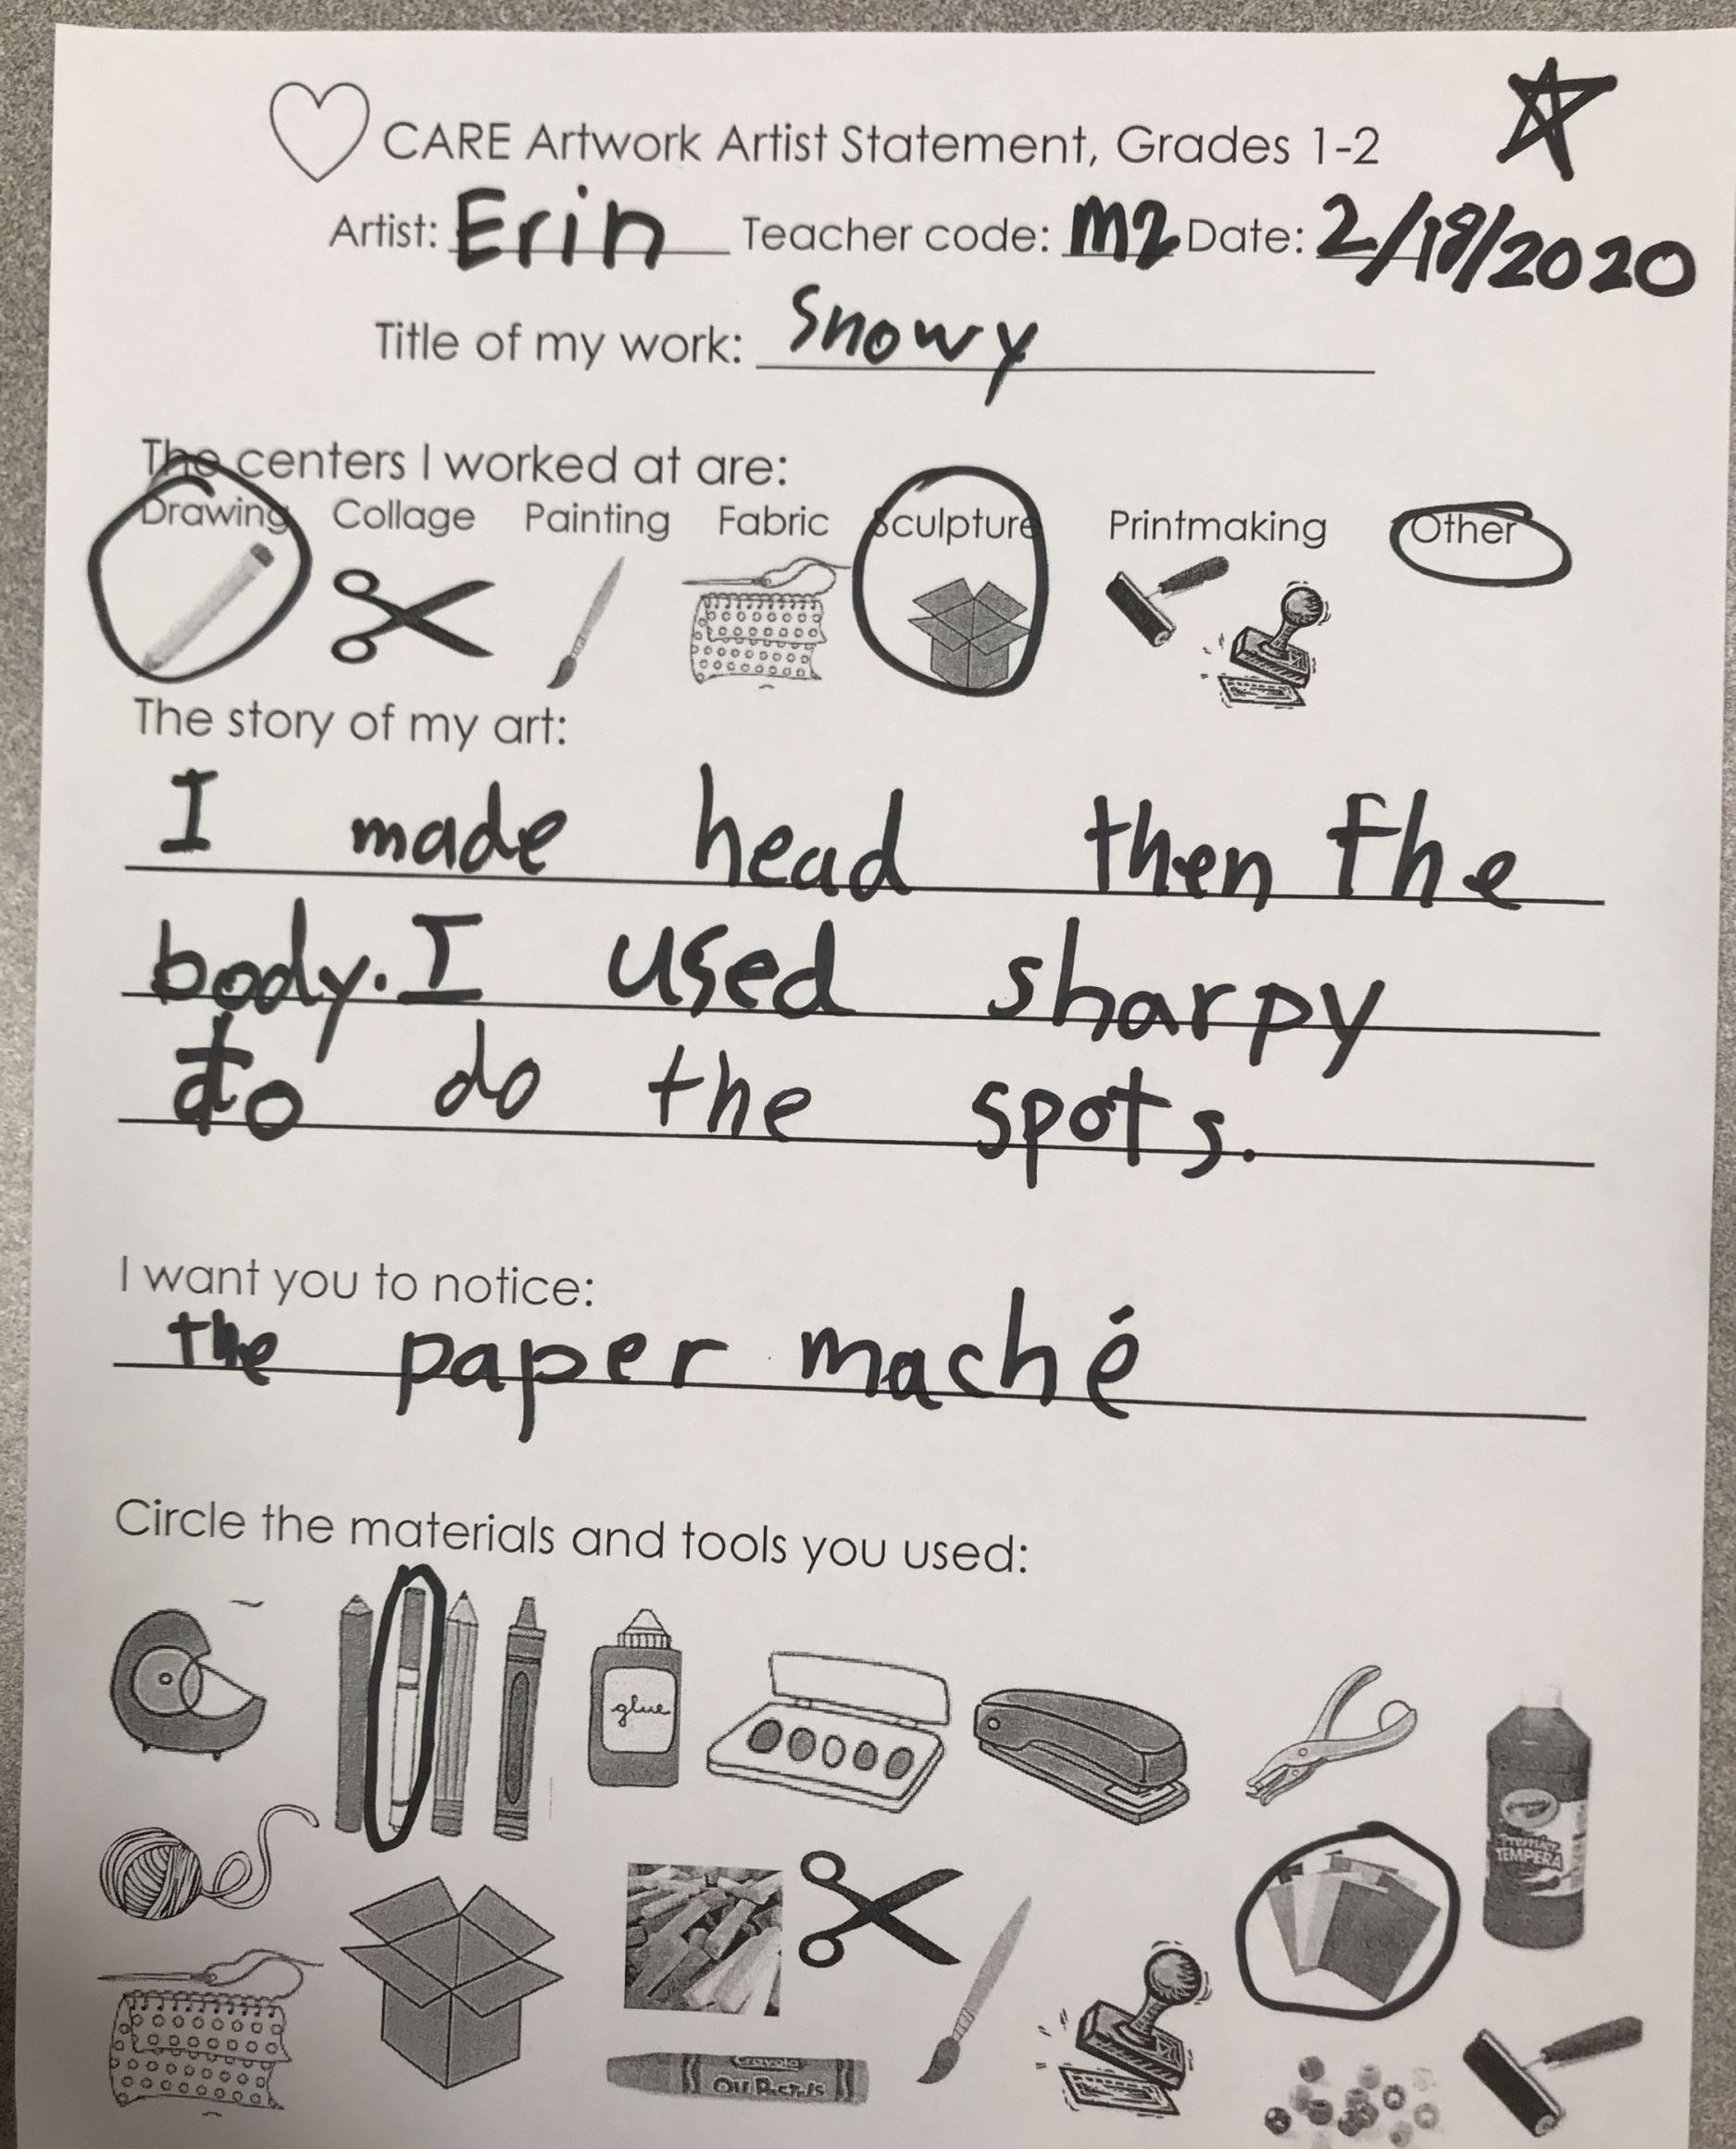 CARE Artwork Artist Statement, Grades 1-2
Artist: Erin Teacher code: M2 Date: 2/18/2020
Title of my work: Snowy
The centers I worked at are:
Drawing Collage Painting Fabric Sculpture Printmaking Other
The story of my art:
I made head then the
body. I used sharpy
to do the spots.
I want you to notice:
the paper maché
Circle the materials and tools you used:
glue
TEMPERA
Crayola
OIL PASTELS